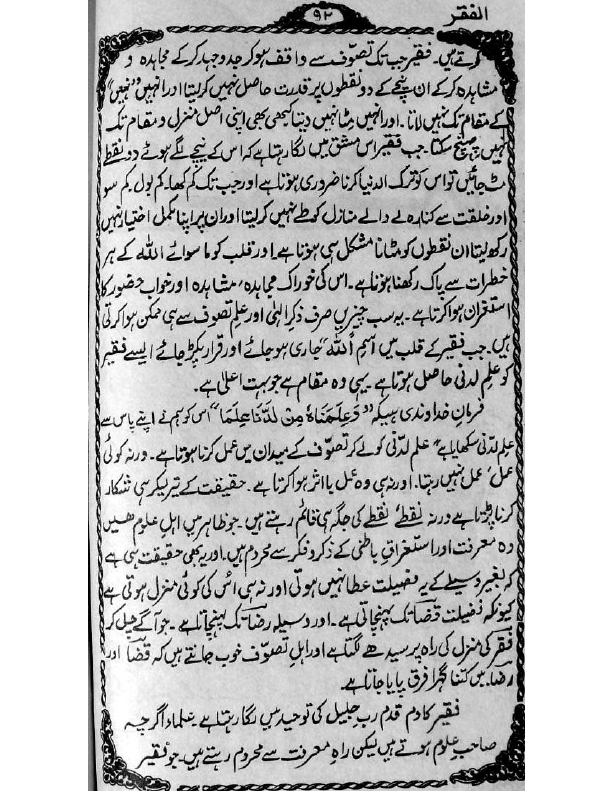 الفقر
۹۲
کرتے ہیں۔ فقیر جب تک تصوّف سے واقف ہو کر جدوجہد کر کے مجاہدہ و
مشاہدہ کر کے ان نیچے کے دو نقطوں پر قدرت حاصل نہیں کر لیتا اور انہیں "نہیں"
کے مقام تک نہیں لاتا۔ اور انہیں مٹا نہیں دیتا کبھی بھی اپنی اصل منزل و مقام تک
نہیں پہنچ سکتا۔ جب فقیر اس مشق میں لگا رہتا ہے کہ اس کے نیچے لگے ہوئے دو نقطے
مٹ جائیں تو اس کو ترک الدنیا کرنا ضروری ہوتا ہے اور جب تک کم کھا۔ کم بول۔ کم سو
اور خلقت سے کنارہ لے والے منازل کو طے نہیں کر لیتا اور ان پر اپنا مکمل اختیار نہیں
رکھ لیتا ان نقطوں کو مٹانا مشکل ہی ہوتا ہے۔ اور قلب کو ما سوائے اللہ کے ہر
خطرات سے پاک رکھنا ہوتا ہے۔ اس کی خوراک مجاہدہ، مشاہدہ اور خواب حضور کا
استغراق ہوا کرتا ہے۔ یہ سب چیزیں صرف ذکر الٰہی اور علم تصوف سے ہی ممکن ہوا کرتی
ہیں۔ جب فقیر کے قلب میں اسم اللہ جاری ہو جائے اور قرار پکڑ جائے ایسے فقیر
کو علم لدنی حاصل ہوتا ہے۔ یہی وہ مقام ہے جو بہت اعلیٰ ہے۔
فرمان خداوندی ہیکہ "وَعَلَّمْنَاهُ مِنْ لَّدُنَّا عِلْمًا" اس کو ہم نے اپنے پاس سے
علم لدنی سکھایا ہے" علم لدنی کو لے کر تصوّف کے میدان میں عمل کرنا ہوتا ہے۔ ورنہ کوئی
عمل، عمل نہیں رہتا۔ اور نہ ہی وہ عمل با اثر ہوا کرتا ہے۔ حقیقت کے تیر لیکر ہی شکار
کرنا پڑتا ہے ورنہ نقطے نقطے کی جگہ ہی قائم رہتے ہیں۔ جو ظاہر میں اہل علوم ھیں
وہ معرفت اور استغراق باطنی کے ذکر و فکر سے محروم ہیں۔ اور یہ بھی حقیقت ہی ہے
کہ بغیر وسیلے کے یہ فضیلت عطا نہیں ہوتی اور نہ ہی اس کی کوئی منزل ہوتی ہے
کیونکہ فضیلت قضا تک پہنچاتی ہے۔ اور وسیلہ رضا تک پہنچاتا ہے۔ جو آگے چل کر
فقر کی منزل کی راہ پر سیدھے لگتا ہے اور اہل تصوّف خوب جانتے ہیں کہ قضا اور
رضا میں کتنا گہرا فرق پایا جاتا ہے۔
فقیر کا دم قدم رب جلیل کی توحید میں لگا رہتا ہے۔ علماء اگرچہ
صاحب علوم ہوتے ہیں لیکن راہ معرفت سے محروم رہتے ہیں۔ جو فقیر